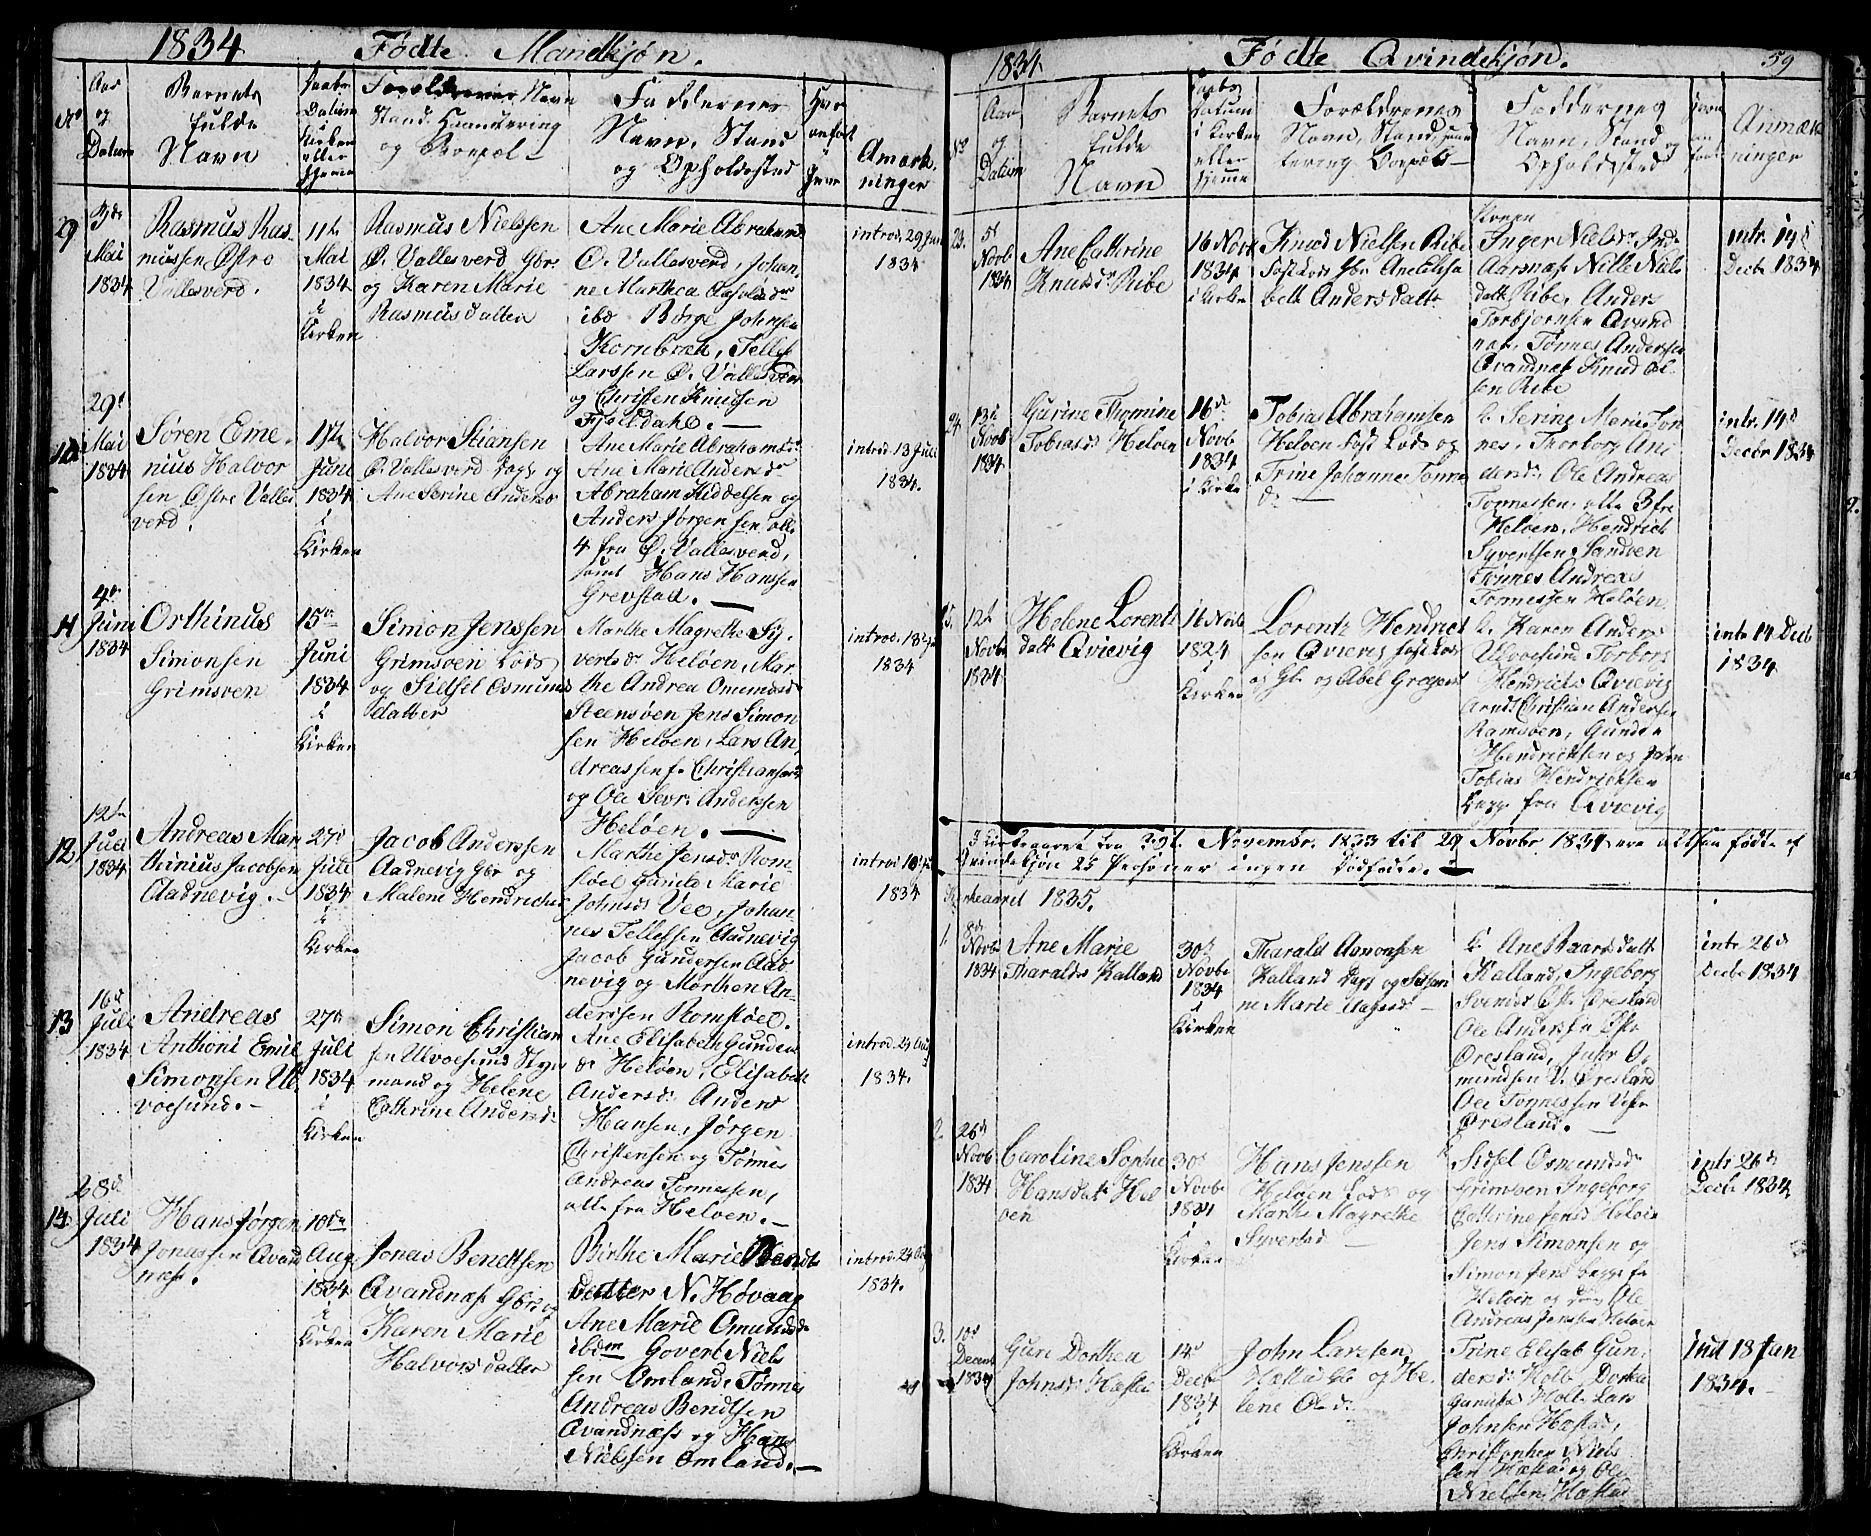 1834 Fødte Mandkjøn.
No
Aar
og
Datum
Barnets
fulde
Navn
Daabs
Datum
i
Kirken
eller
Hjemme
Forældrenes Navn
Stand Haandtering
og Boepæl
Faddernes
Navn, Stand
og Opholdssted
Anmærk-
ninger
9
3die
Mai
1834
Rasmus Ras-
mussen Østre
Vallesverd.
11te
Mai
1834
i
Kirken
Rasmus Nielssen
Ø. Vallesverd Gbr.
og Karen Marie
Rasmusdatter
Ane Marie Abrahamsd
Ø. Vallesverd, Johan-
ne Marthea
ibd Børge Johnsen
Kornbræk, Tellef
Larssen Ø. Vallesver
og Christen Knudsen
Fjeldahl.
introd. 29 Juni
1834
10
29d
Mai
1834
Søren Eme-
nius Halvor
sen Østre Valles
verd.
1ste
Juni
1834
i
Kirken
Halvor Stiansen
Ø. Vallesverd og
Ane Serine Andersd
Ane Marie Abrahamsd:
Ane Marie Andersdr
Abraham Kiddelsen og
Anders Jørgensen alle
4 fra Ø. Vallesverd,
samt Hans Hanssen
Grevstad.
introd. 13 Juli
1834.
11
4de
Juni
1834
Orthinius
Simonsen
Grimsøen
15de
Juni
1834
i
Kirken
Simon Jenssen
Grimsøen Lods
og Sidsel Osmunds
datter
Marthe Magrethe Sy-
vertsdr Heløen, Mar-
the Andrea Omundsd
Steensøen Jens Simon
sen Heløen, Lars An-
dreassen fr Christiansand
og Ole Sevr: Anderssen
Heløen.
introd. 13
1834
12
12te
Juli
1834
Andreas Mar
thinius Jacobsen
Aadnevig.
27d
Juli
1834
i
Kirken
Jacob Anderssen
Aadnevig Gbr og
Malene Hendrichs
Marthe Jensdr Rom-
støel Gunild Marie
Johnsdr Vee, Johan-
nes Tellefsen Aadnevig
Jacob Gundersen Aad
nevig og Morthen An-
derssen Romstøel.
introd 10
1834
13
16d
Juli
1834
Andreas
Anthoni Emil
Simonsen Ul
voesund.
27de
Juli
1834
i
Kirken
Simon Christian
sen Ulvoesund Styr
mand og Helene
Cathrine Andersd:
Ane Elisabeth Gunders
dr Heløen, Elisabeth
Andersd: Anders
Hansen, Jørgen
Christensen og Tønnes
Andreas Tønnessen,
alle fra Heløen.
introd. 24 Aug
1834.
14
28d
Juli
1834
Hans Jørgen
Jonassen Qvand
næs.
10de
Aug
1834
i
Kirken
Jonas Bendtsen
Qvandnæs Gbr. og
Karen Marie
Halvorsdatter
Birthe Marie Bendts
datter N. Høvaag
Ane Marie Omundsd
ibdm Govert Niels
sen Omland, Tønnes
Andreas Bendtsen
Qvandnæs og Hans
Nielssen Omland.
introd. 24 Aug
1834.
1834 Fødte Qvindekjøn. 59
No
Aar
og
Datum
Barnets
fulde
Navn
Daabs
Datum
i Kirken
eller
Hjemme
Forældrenes
Navn, Stand, Haand
tering Boepæl
Faddernes
Navn, Stand og
Opholdssted
Anmærk
ninger
23.
5t
Novb
1834
Ane Cathrine
Knudsdr Ribe
16 Novb
1834
i Kirken
Knud Nielsen Ribe
Gbr Ane Elisa
beth Andersdatter
Konen
Inger Nielsdr Ind-
Aarsnæs Nille Niels
datt. Ribe, Anders
Torbjørnsen Qvand
næs, Tønnes Andersen
Qvandnæs Knud Ol-
sen Ribe
intr. 14d
Decbr 1834
24.
13d
Novb
1834
Gurine Thomine
Tobiasdr Heløen
16d
Novb
1834
i Kirken
Tobias Abrahamsen
Heløen Lods og
Trine Johanne Tønne
dr
Serine Marie Tøn
nes. Thorborg An
dersd: Ole Andreas
Tønnessen, alle 3 fra
Heløen, Hendrick
Syvertsen Sandøen
Tønnes Andreas
Tønnessen Heløen
intr. 14d
Decbr 1834
25.
12t
Novb
1824
Helene Lorents
datt Qvievig
16 Novb
1824
i
Kirken
Lorents Hendrick
sen Qvievig Lods
og Gbr og Abel Gregers
Karen Anders
Ulvoesund Torborg
Hendrichs Qvievig
Arndt Christian Andersen
Ramsøen, Gunder
Hendrichsen og
Tobias Hendricksen
begge fra Qvievig
intr 14 Decb
1834
I Kirkeaaret fra Novembr. 1833 til 29 Novbr. 1834 ere altsaa fødte af
Qvindekjøn 25 Personer ingen Dødfødte.
Kirkeaaret 1835.
1.
8d
Novbr
1834
Ane Marie
Tharaldsd Kalland
30d
Novbr
1834
i
Kirken
Tharald Aamonsen
Kalland og
ne Marie
Ane Baardsdatt
Kalland, Ingeborg
Øresland
Ole Andersen
Øresland, O-
mundsen V. Øresland
Ole Tønnessen
Øresland.
intr 26d
Decbr 1834
2.
26d
Novb
1834
Caroline Sophie
Hansdatt Hel
øen
30d
Novbr
1834
i
Kirken
Hans Jenssen
Heløen Lods og
Marthe Magrethe
Syvertsd
Sidsel Osmundsdr
Grimsøen Ingeborg
Cathrine Jensd Heløen
Jens Simonsen og
Simon Jens begge fr
Heløen og Ole
Andreas Jenssen Heløen
intr 26d
Decbr 1834
3.
10d
Decemb
1834
Guri Dorthea
Johnsdr Hæstad
14d
Decbr
1834
i
Kirken
John Larsen
Hæstad Gbr og He-
lene Olsd:
Trine Elisab Gun-
dersd: Holt Dorthea
Gunilds Holt Lars
Johnsen Hæstad,
Christopher Niels
sen Hæstad og Ole
Nielsen Hæstad
ind 18 Jan
1834.